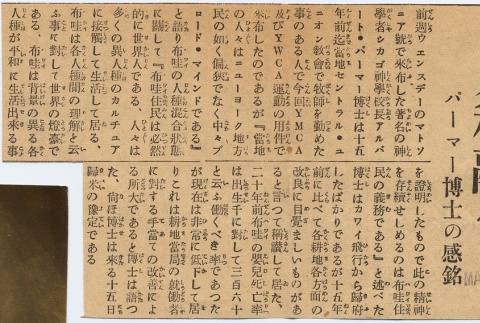 パーマー博士の感銘
前週ウエンスデーのマトソ
ニア號で來布した著名の神
學者シカゴ神學校長アルバ
ート・パーマー博士は十五
年前迄當地セントラル・ユ
ニオン敎會で牧師を勤めた
事のある人で今回YMCA
及びYWCA運動の用件で
來布したのであるが『當地
の人々はニューヨーク地方
民の如く偏狹でなく中々ブ
ロード・マインドである』
と語り布哇の人種混合狀態
に關して『布哇住民は必然
的に世界人である、人々は
多くの異人種のカルチュア
に接觸して生活して居る、
布哇は各人種間の理解と云
ふ事に對して世界の燈臺で
ある、布哇は背景の異る各
人種が平和に生活出來る事
を證明したもので此の精神
を存續せしめるのは布哇住
民の義務である』と述べた
博士はカワイ飛行から歸府
したばかりであるが十五年
前に比べて各耕地各方面の
改良に目覺ましいものがあ
ると言つて稱讃して居た、
二十年前布哇の嬰兒死亡率
は出生千に對して三百六十
と云ふ働くべき率であつた
が現在は非常に低下して居
りこれは耕地當局の就働者
に對する手當ての改善によ
る所大であると博士は語つ
た、尙ほ博士は來る十五日
歸米の豫定である
MA